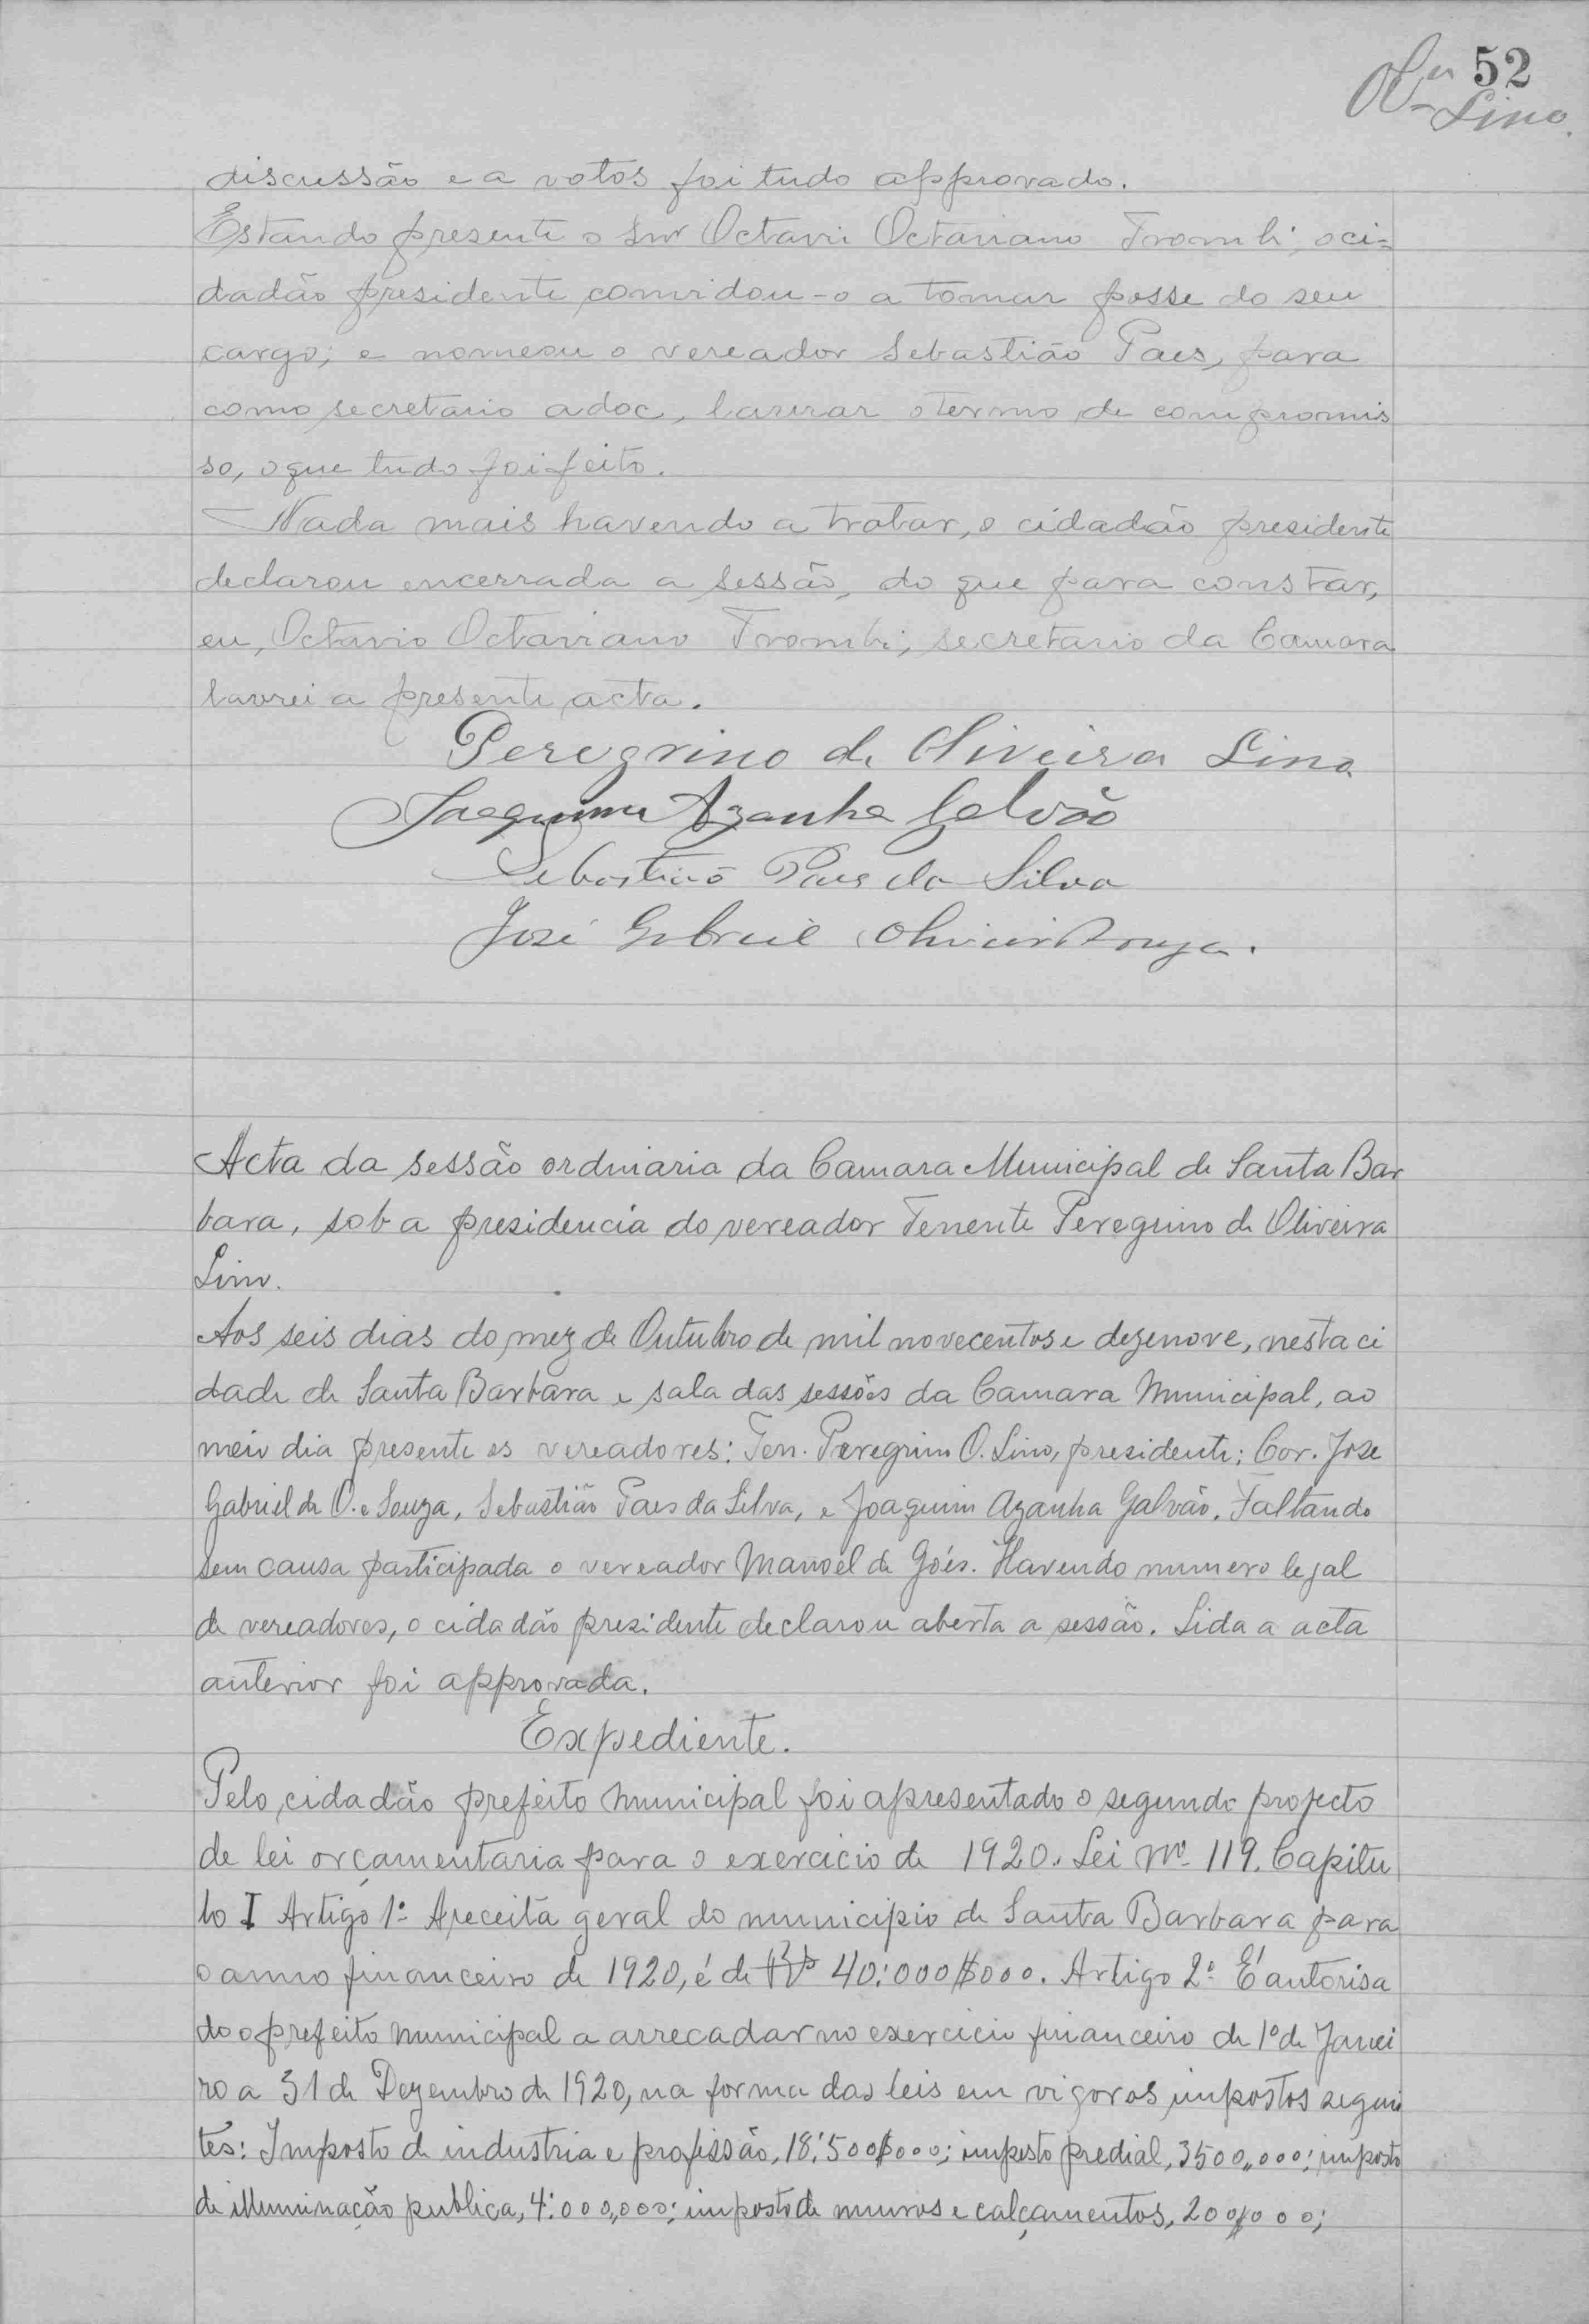 52
Lino.
discussão e a votos foi tudo approvado.
Estando presente o snr Octavio Octaviano Trombi; o ci=
dadão presidente convidou-o a tomar posse do seu
cargo; e nomeou o vereador Sebastião Paes, para
como secretario adoc, lavrar o termo de compromis
so, o que tudo foi feito.
Nada mais havendo a tratar, o cidadão presidente
declarou encerrada a sessão, do que para constar,
eu, Octavio Octaviano Trombi; secretario da Camara
lavrei a presente acta.
Peregrino de Oliveira Lino.
Joaquim Azanha Galvão
Sebastião Paes da Silva
José Gabriel Oliveira Souza.
Acta da sessão ordinaria da Camara Municipal de Santa Bar
bara, sob a presidencia do vereador Tenente Peregrino de Oliveira
Lino.
Aos seis dias do mez de Outubro de mil novecentos e dezenove, nesta ci
dade de Santa Barbara e sala das sessões da Camara Municipal, ao
meio dia presente os vereadores: Ten. Peregrino O. Lino, presidente; Cor. Jose
Gabriel de O. e Souza, Sebastião Paes da Silva, e Joaquim Azanha Galvão. Faltando
sem causa participada o vereador Manoel de Góes. Havendo numero legal
de vereadores, o cidadão presidente declarou aberta a sessão. Lida a acta
anterior foi approvada.
Expediente.
Pelo cidadão prefeito municipal foi apresentado o segundo projecto
de lei orçamentaria para o exercicio de 1920. Lei Nº 119. Capitu
lo I Artigo 1º A receita geral do municipio de Santa Barbara para
o anno financeiro de 1920, é de Rs 40:000$000. Artigo 2º É autorisa
do o prefeito municipal a arrecadar no exercicio financeiro de 1º de Janei
ro a 31 de Dezembro de 1920, na forma das leis em vigor os impostos seguin
tes: Imposto de industria e profissão, 18:500$000; imposto predial, 3500,,000; imposto
de illuminação publica, 4:000,,000; imposto de muros e calçamentos, 200$000;